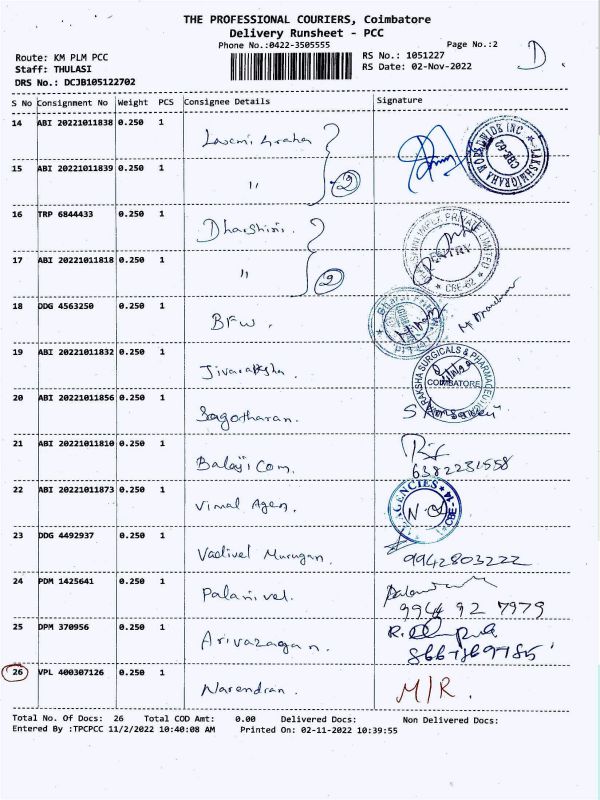 THE PROFESSIONAL COURIERS, Coimbatore
Delivery Runsheet - PCC
Phone No.:0422-3505555 Page No.:2
D.
Route: KM PLM PCC RS No.: 1051227
Staff: THULASI RS Date: 02-Nov-2022
DRS No.: DCJB105122702
S No Consignment No Weight PCS Consignee Details Signature
14 ABI 20221011838 0.250 1 Laxmi Graha
LAKSHMIGRAHA WORLDWIDE INC CBE-62
15 ABI 20221011839 0.250 1 " 2
16 TRP 6844433 0.250 1 Dharshini.
PRIVATE LIMITED ENTRY CBE-62
17 ABI 20221011818 0.250 1 " 2
18 DDG 4563250 0.250 1 BFW.
19 ABI 20221011832 0.250 1 Jivaraksha.
RAKSHA SURGICALS & COIMBATORE
20 ABI 20221011856 0.250 1 Sagotharan.
21 ABI 20221011810 0.250 1 Balaji Com.
6382231558
22 ABI 20221011873 0.250 1 Vimal Agen.
AGENCIES CBE-14
23 DDG 4492937 0.250 1 Vadivel Murugan.
9942803222
24 PDM 1425641 0.250 1 Palanivel.
9944 92 7979
25 DPM 370956 0.250 1 Arivazagan.
26 VPL 400307126 0.250 1 Narendran. M/R.
Total No. Of Docs: 26 Total COD Amt: 0.00 Delivered Docs: Non Delivered Docs:
Entered By :TPCPCC 11/2/2022 10:40:08 AM Printed On: 02-11-2022 10:39:55